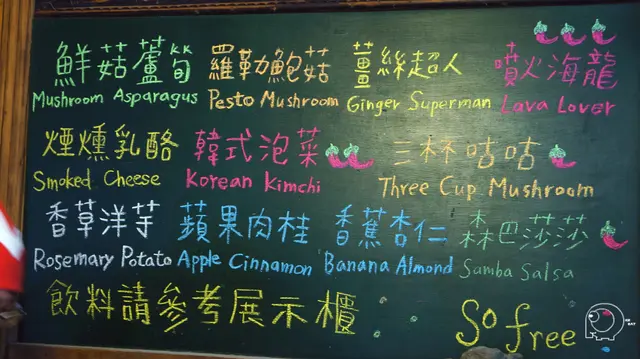 鮮菇蘆筍 羅勒鮑菇 薑絲超人 噴火海龍
Mushroom Asparagus Pesto Mushroom Ginger Superman Lava Lover
煙燻乳酪 韓式泡菜 三杯咕咕
Smoked Cheese Korean Kimchi Three Cup Mushroom
香草洋芋 蘋果肉桂 香蕉杏仁 森巴莎莎
Rosemary Potato Apple Cinnamon Banana Almond Samba Salsa
飲料請參考展示櫃 So free